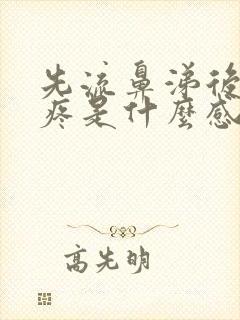 先流鼻涕後
疼是什麼感
高先明